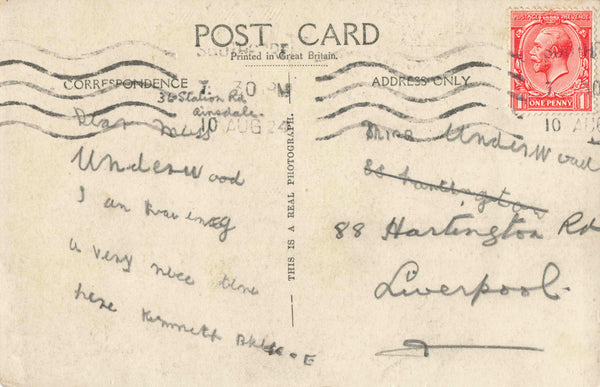 POST CARD
Printed in Great Britain.
CORRESPONDENCE
ADDRESS ONLY
POSTAGE REVENUE
ONE PENNY
7. 30 PM
10 AUG 24
10 AUG
36 Station Rd
Ainsdale.
Dear Miss
Underwood
I am having
a very nice time
here Kenneth
THIS IS A REAL PHOTOGRAPH.
Miss Underwood
88 Hartington Rd
Liverpool.